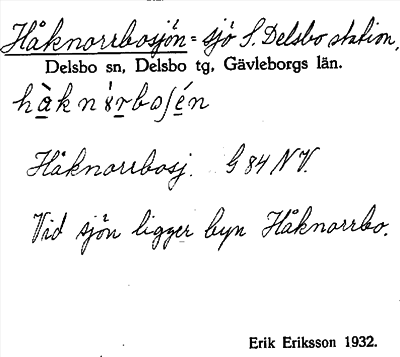 Håknorrbosjön = sjö S. Delsbo station,
Delsbo sn, Delsbo tg, Gävleborgs län.
Håknorrbosj. G 84 NV.
Vid sjön ligger byn Håknorrbo.
Erik Eriksson 1932.